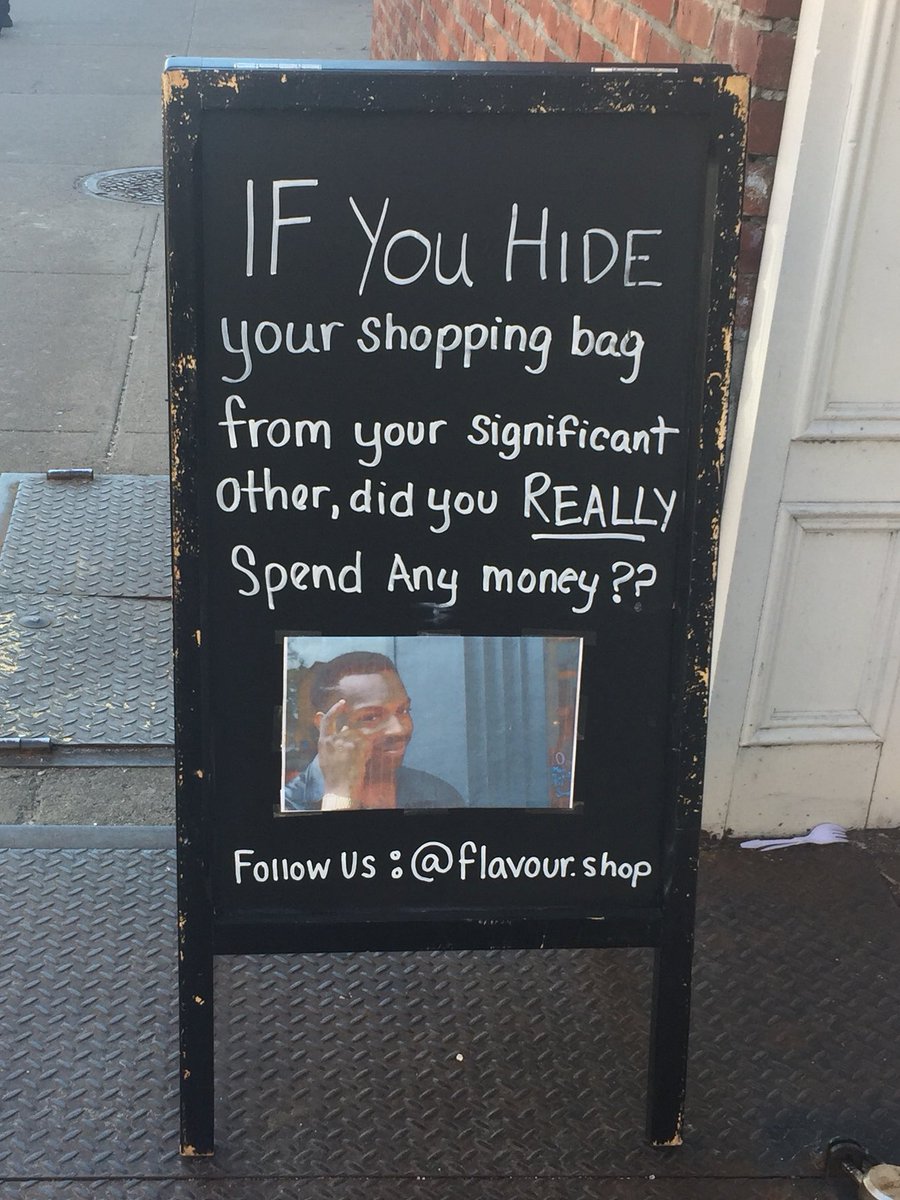 IF You HIDE
your shopping bag
from your significant
other, did you REALLY
Spend Any money??
Follow Us : @flavour.shop